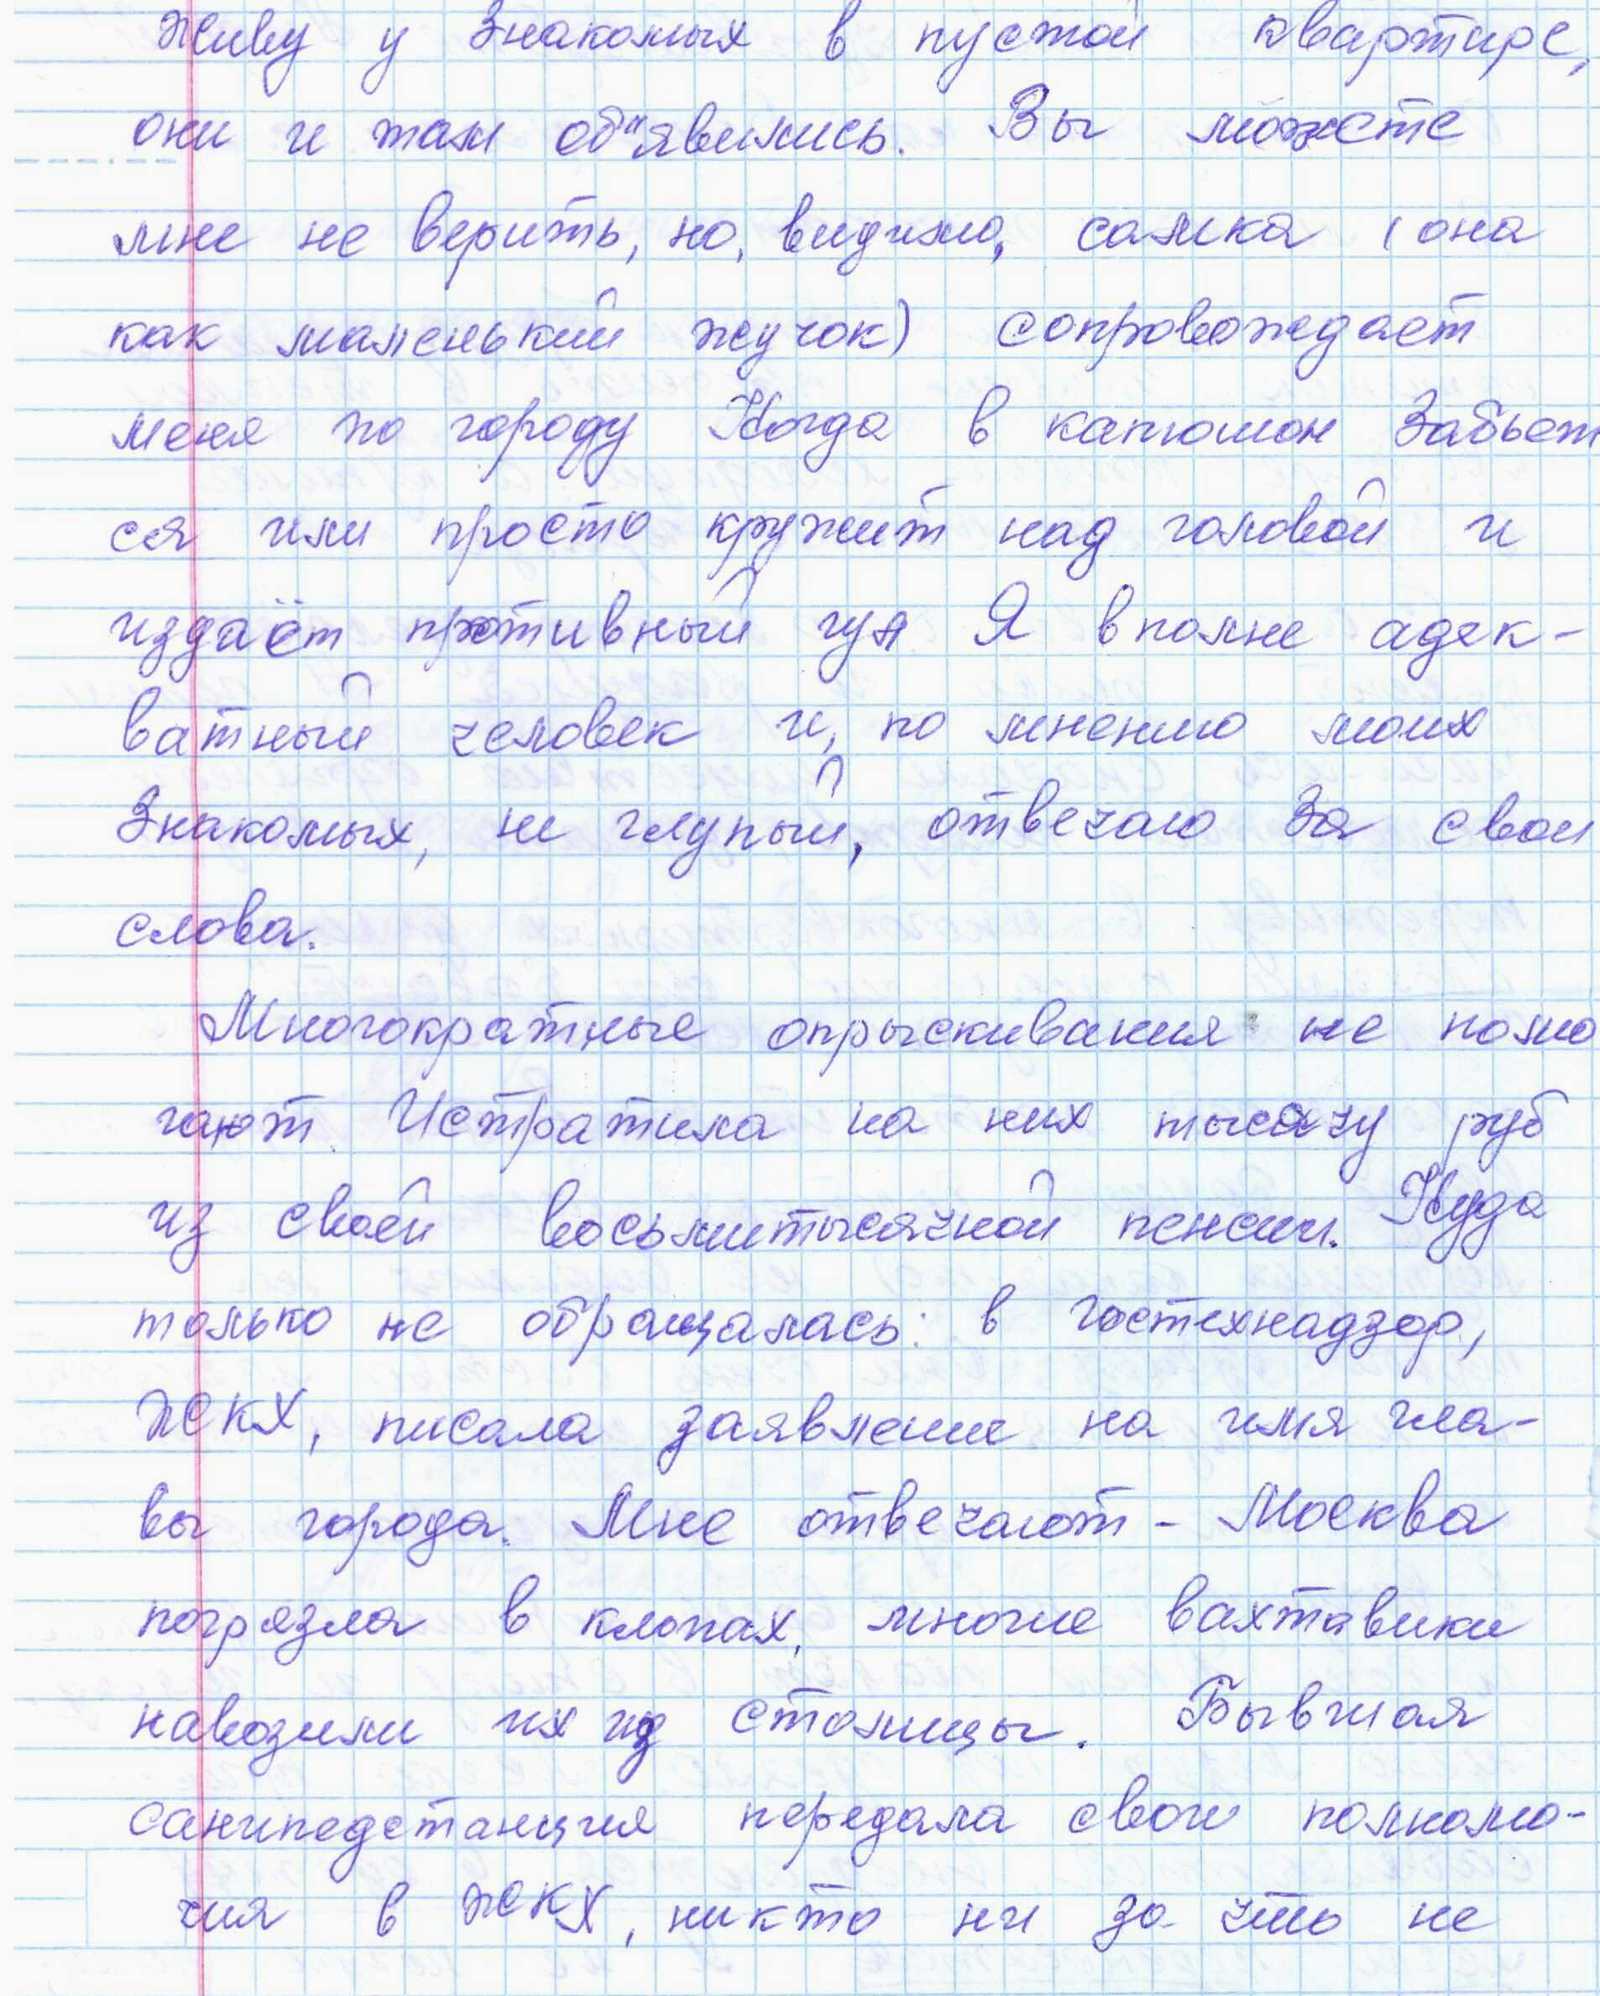 Живу у знакомых в пустой квартире,
они и там об"явились. Вы можете
мне не верить, но, видимо, самка (она
как маленький жучок) сопровождает
меня по городу Когда в капюшон забьет
ся или просто кружит над головой и
издаёт противный гул Я вполне адек-
ватный человек и, по мнению моих
знакомых, не глупый, отвечаю за свои
слова.
Многократные опрыскивания не помо
гают. Истратила на них тысячу руб
из своей восьмитысячной пенсии. Куда
только не обращалась: в Гостехнадзор,
ЖКХ, писала заявление на имя гла-
вы города. Мне отвечают - Москва
погрязла в клопах, многие вахтавики
навозили их из столицы. Бывшая
санипедстанция передала свои полномо-
чия в ЖКХ, никто ни за что не